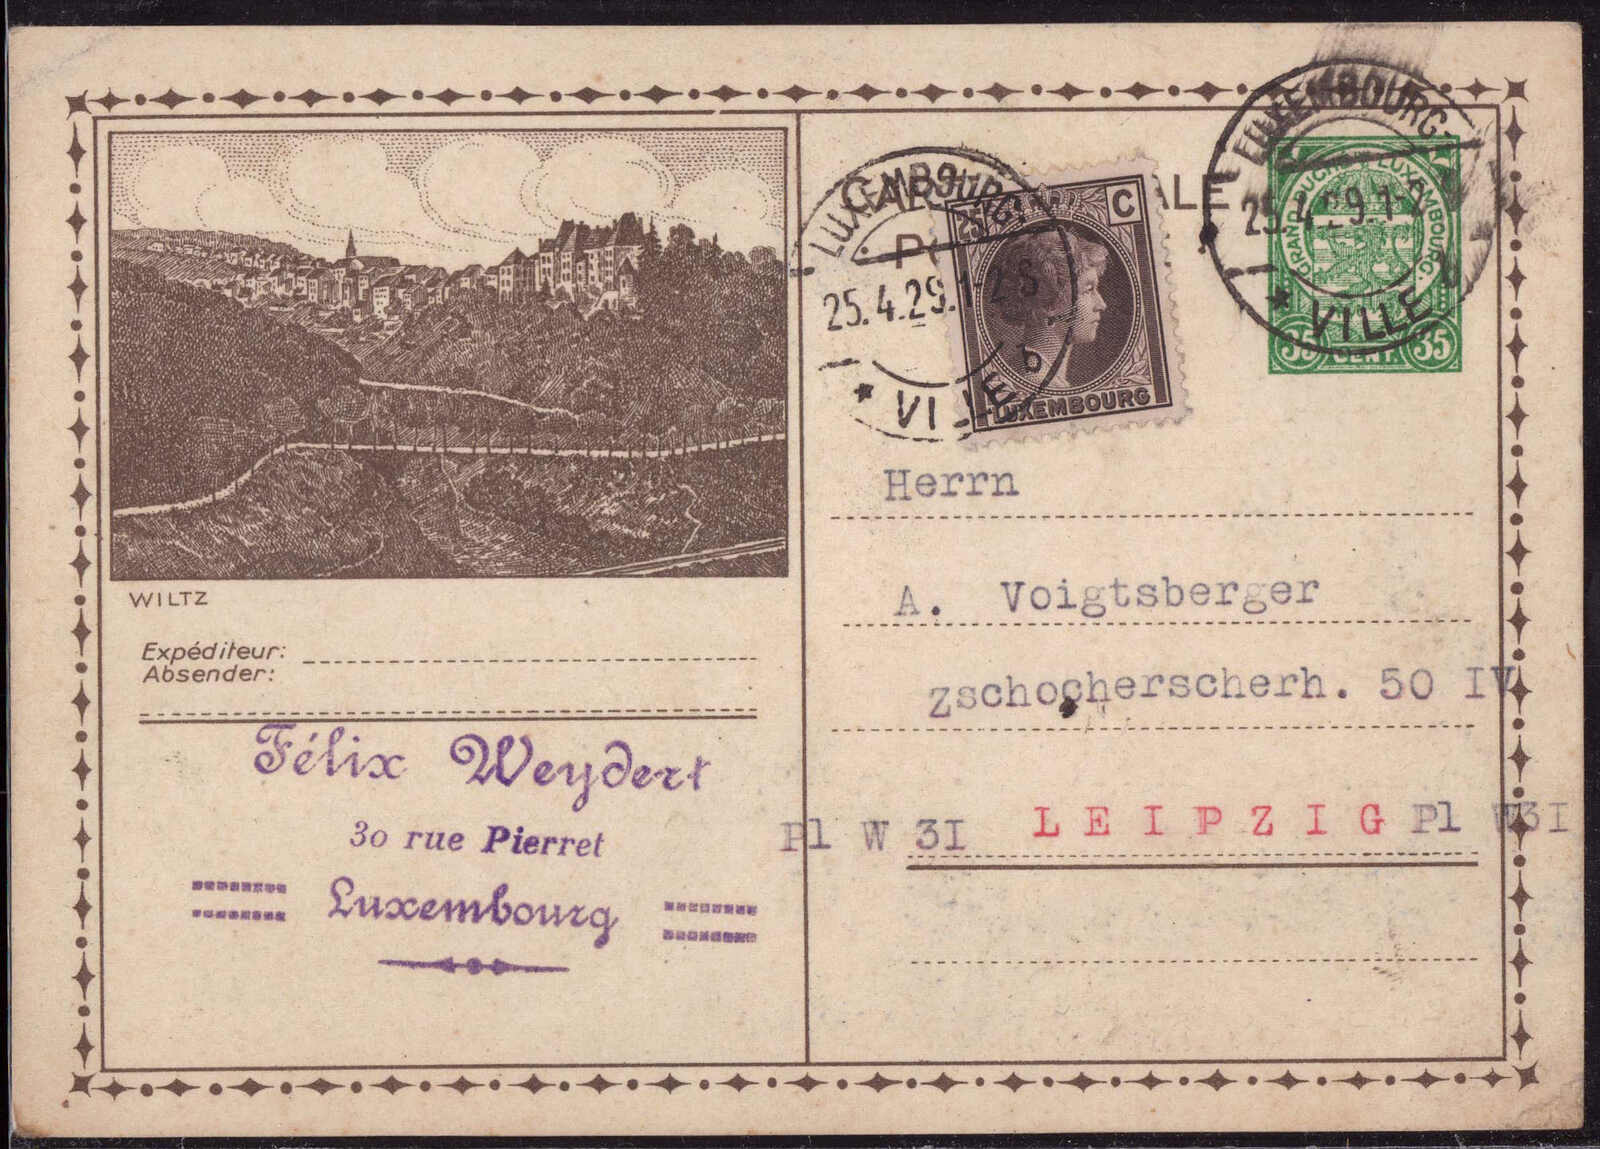 WILTZ
Expéditeur:
Absender:
Félix Weydert
30 rue Pierret
Luxembourg
LUXEMBOURG
25.4.29.1-2 S
b
* VILLE
25 C
LUXEMBOURG
LUXEMBOURG-
25.4.29.1-2
* VILLE
GRAND DUCHÉ DE LUXEMBOURG.
35 CENT. 35
Herrn
A. Voigtsberger
zschocherscherh. 50 IV
Pl W 3I L E I P Z I G Pl W3I